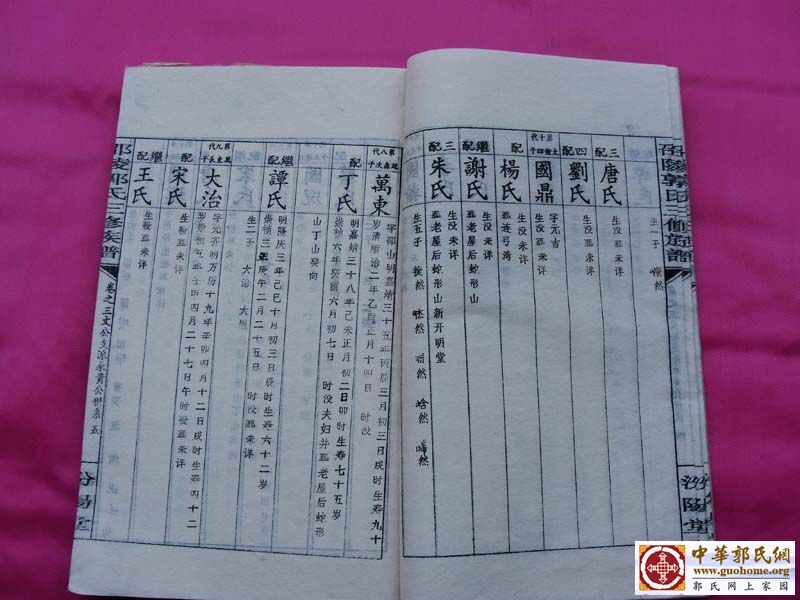 邵陵郭氏三修族譜
汾陽堂
三配
唐氏
生一子
四配
劉氏
生没未详
第十代
國鼎
字元吉
生没未详
配
楊氏
生没未详
继配
謝氏
生没未详
老屋后蛇形山
三配
朱氏
生没未详
老屋后蛇形山新开明堂
生五子
第八代
萬東
字邵山明嘉靖三十五年丙辰三月初三日戌时生寿九十
岁清顺治二年乙酉十月十四日
时没
配
丁氏
明嘉靖三十八年己未正月初二日卯时生寿七十五岁
崇祯六年癸酉六月初七日
时没夫妇并
老屋后蛇形
山丁山癸向
继配
譚氏
明隆庆三年己巳十月初三日辰时生寿六十二岁
崇祯三年庚午二月二十五日
时没
未详
生二子
大治
第九代
大治
字元齐明万历十九年辛卯四月十二日戌时生寿四十二
崇祯五年壬申四月二十七日午时没
未详
配
宋氏
生殁
未详
继配
王氏
生殁
未详
邵陵郭氏三修族譜
卷之三文公支派永貴公世系
五
汾陽堂
中華郭氏網
www.guohome.org
郭氏网上家园